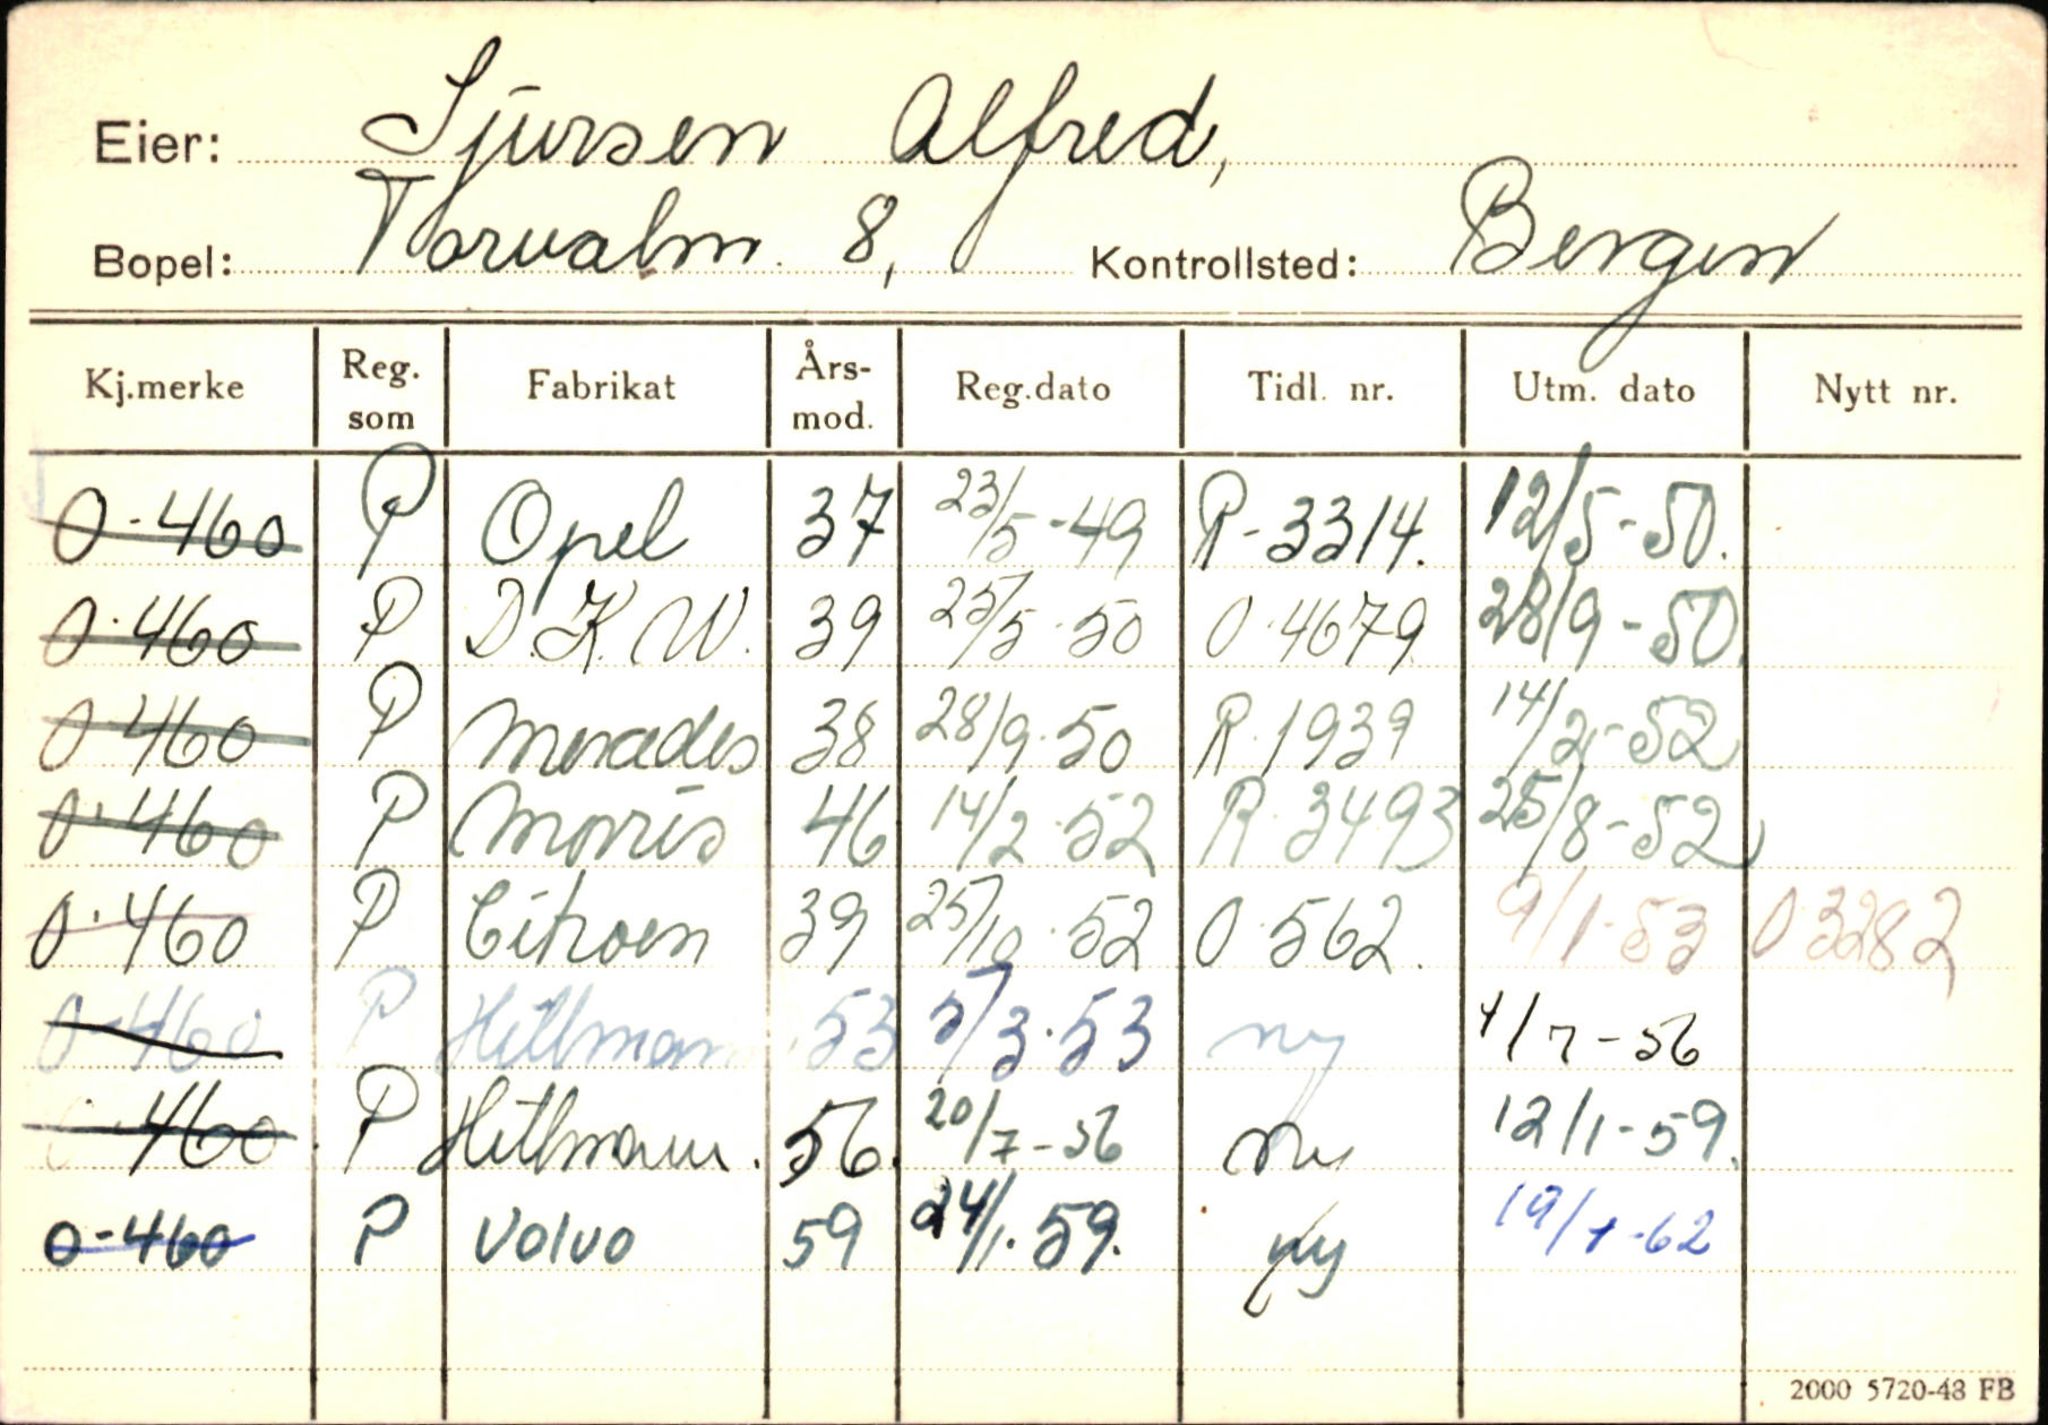 Eier: Sjursen Alfred,
Bopel: Torvalm. 8, Kontrollsted: Bergen
Kj.merke Reg. som Fabrikat Års-mod. Reg.dato Tidl. nr. Utm. dato Nytt nr.
O-460 P Opel 37 23/5-49 R-3314. 12/5-50.
O.460 P D.K.W. 39 25/5.50 O.4679 28/9-50.
O-460 P Mercedes 38 28/9.50 R.1939 14/2-52
O.460 P Morris 46 14/2.52 R.3493 25/8-52
O.460 P Citroen 39 25/10.52 O.562. 9/1-53 O.3282
O-460 P Hillman 53 5/3.53 ny 4/7-56
O-460 P Hillmann. 56. 20/7-56 ny 12/1-59.
O-460 P Volvo 59 24/1.59. ny 19/1-62
2000 5720-48 FB